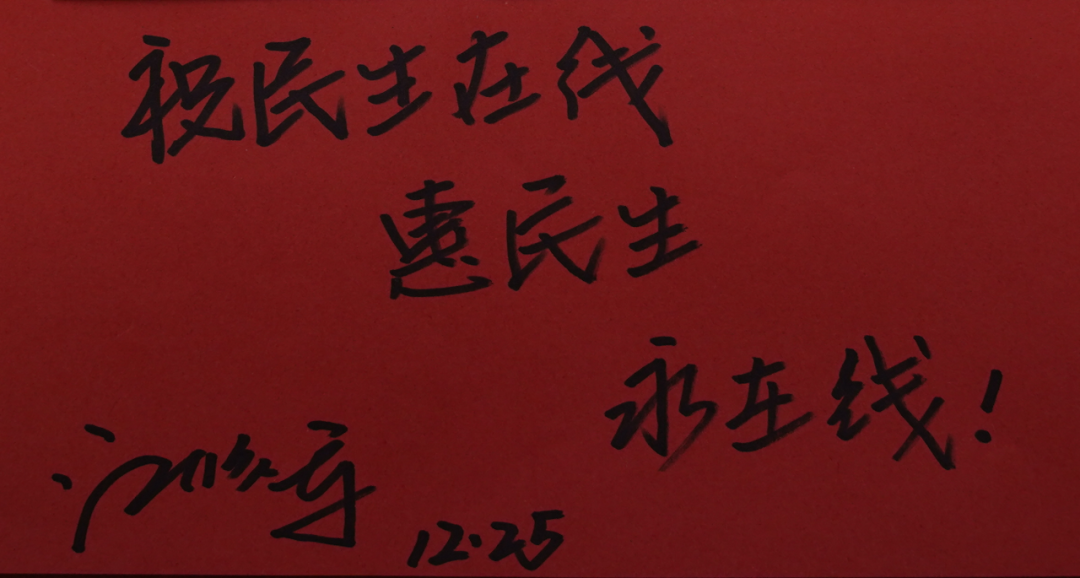 祝民生在线
惠民生
永在线！
12.25